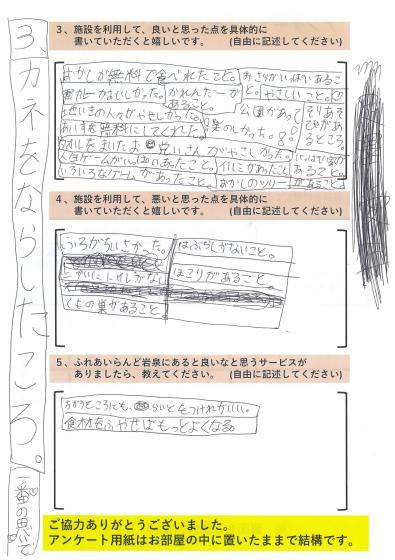 3、施設を利用して、良いと思った点を具体的に
書いていただくと嬉しいです。 (自由に記述してください)
おかしが無料で食べれたこと。
おさらがいっぱいあること。
やさしいこと。
カレーがおいしかった。
地いきの人々がやさしかった
あいすを無料にしてくれた
公園があって
楽しのしかった。!!
そりあそびがあるところ。
人生ゲームがいっぱいあったこと。
いろいろなゲームがあったこと。
おかしのツリーがあること
4、施設を利用して、悪いと思った点を具体的に
書いていただくと嬉しいです。 (自由に記述してください)
ふろがちいさかった。
はぶらしがないこと。
ほこりがあること。
くもの巣があること
5、ふれあいらんど岩泉にあると良いなと思うサービスが
ありましたら、教えてください。 (自由に記述してください)
ちがうところにも、
らいとをつければいい。
食材をふやせばもっとよくなる。
3、カネをならしたころ。
一番の思いで
ご協力ありがとうございました。
アンケート用紙はお部屋の中に置いたままで結構です。